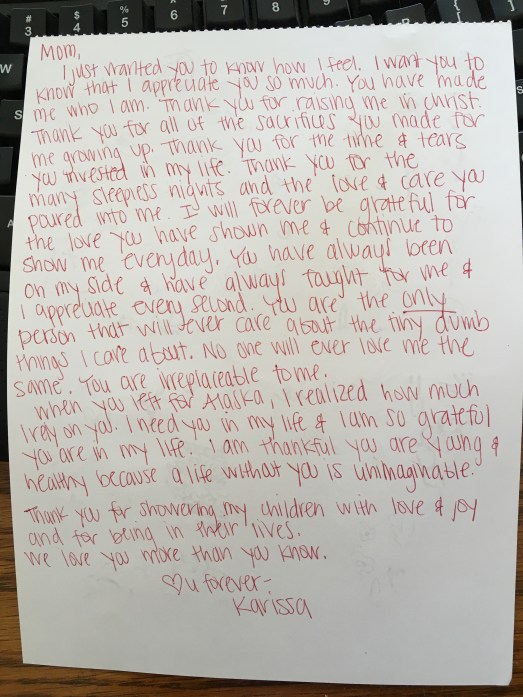 # 3
$ 4
% 5
^ 6
7
8
9
W
S
A
Mom,
I just wanted you to know how I feel. I want you to
know that I appreciate you so much. You have made
me who I am. Thank you for raising me in Christ.
Thank you for all of the sacrifices you made for
me growing up. Thank you for the time & tears
you invested in my life. Thank you for the
many sleepless nights and the love & care you
poured into me. I will forever be grateful for
the love you have shown me & continue to
show me everyday. You have always been
on my side & have always faught for me &
I appreciate every second. You are the only
person that will ever care about the tiny dumb
things I care about. No one will ever love me the
same. You are irreplaceable to me.
When you left for Alaska, I realized how much
I rely on you. I need you in my life & I am so grateful
you are in my life. I am thankful you are young &
healthy because a life without you is unimaginable.
Thank you for showering my children with love & joy
and for being in their lives.
We love you more than you know.
♡ u forever-
Karissa